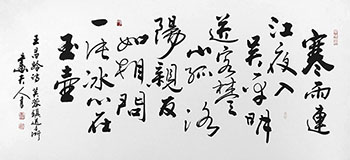 寒雨連
江夜入
吳平明
送客楚
山孤洛
陽親友
如相問
一片冰心在
玉壺
王昌齡詩芙蓉樓送辛漸